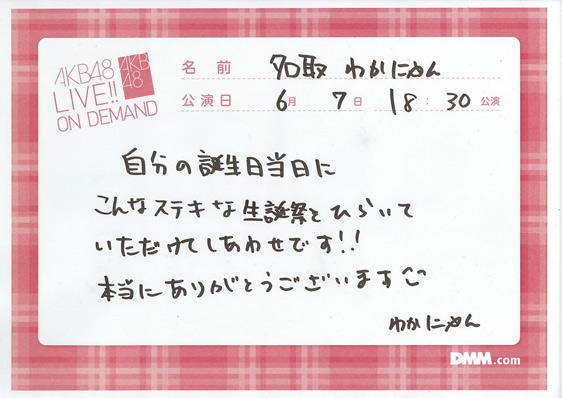 AKB48
LIVE!!
ON DEMAND
AKB
48
名前 名取 わかにゃん
公演日 6月 7日 18:30公演
自分の誕生日当日に
こんなステキな生誕祭をひらいて
いただけてしあわせです!!
本当にありがとうございます
わかにゃん
DMM.com